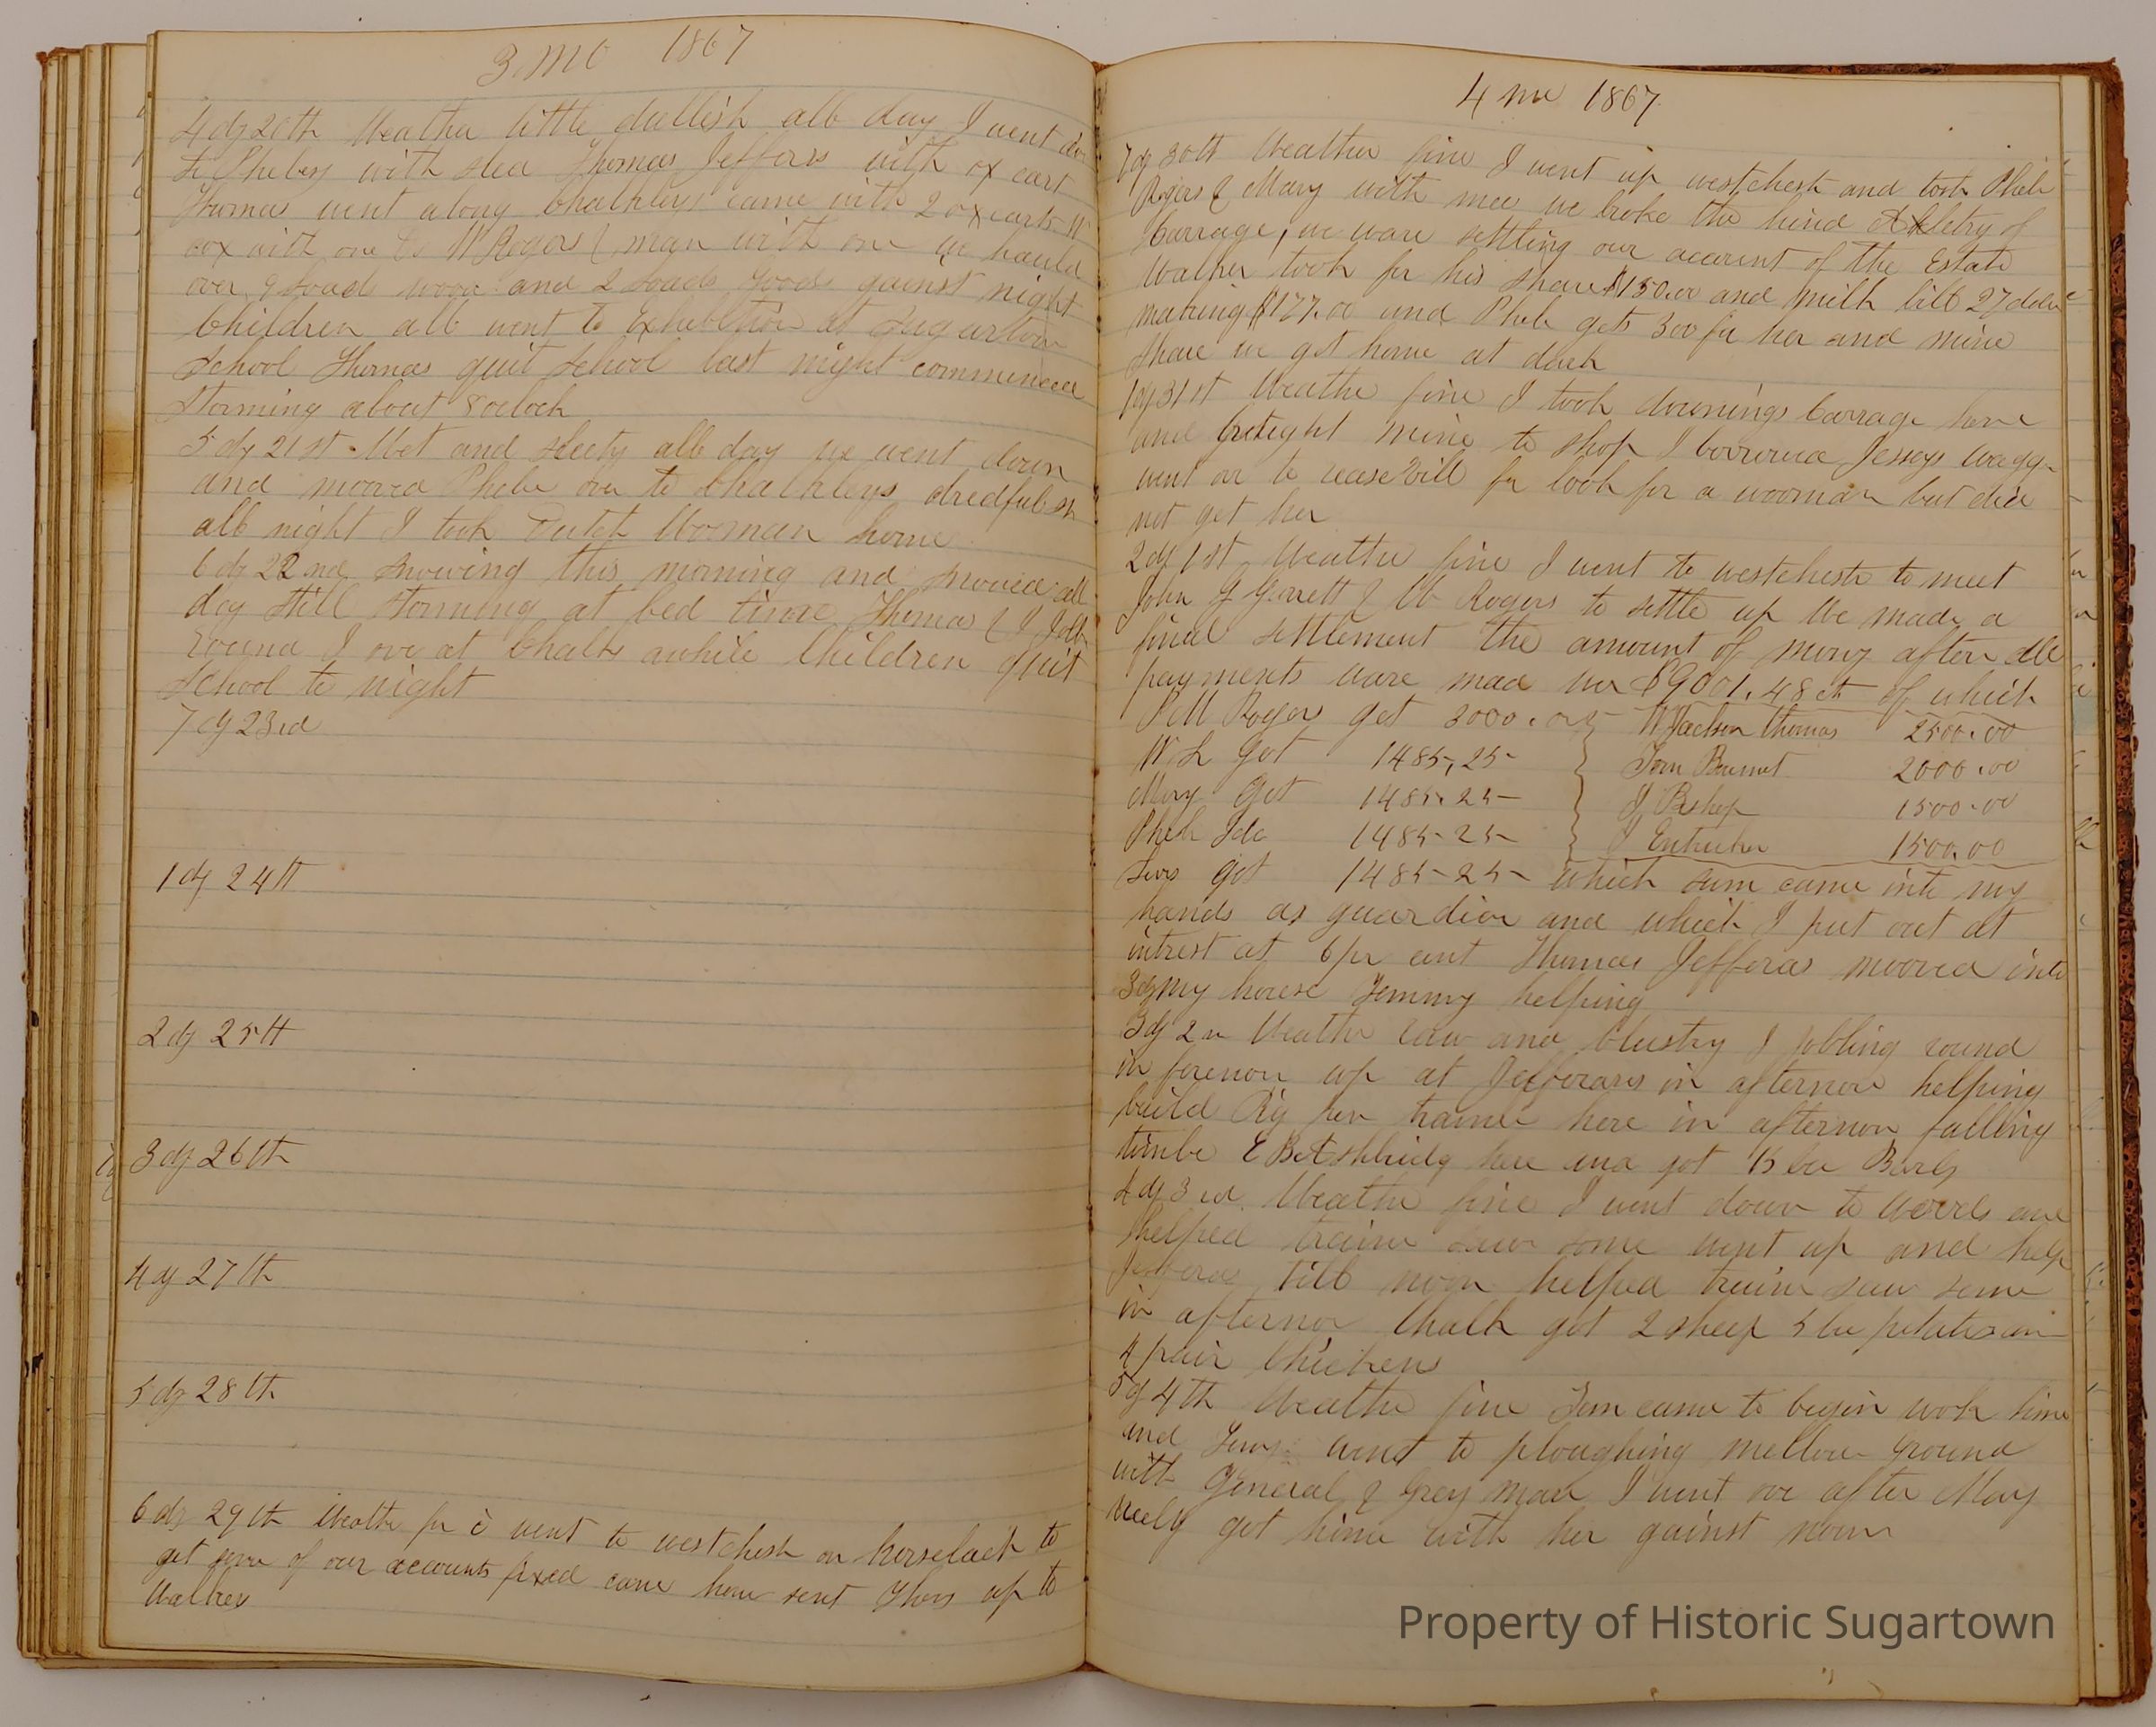 3 mo 1867
4 dy 20th Weather little dullish all day I went
to Phebes with sled Thomas Jefferis with ox cart
Thomas went along Chalkleys came with 2 ox carts W
cox with one W Rogers & man with one we hauld
over 9 Loads wood and 2 Loads goods gainst night
Children all went to Exhibition at Sugartown
School Thomas quit School last night commenced
storming about 8 oclock
5 dy 21st Wet and sleety all day we went down
and mooved Phebe over to Chalkleys dredful
all night I took Dutch Wooman home
6 dy 22nd Snowing this morning and snowed all
day still storming at bed time Thomas & I Job
round I over at Chalks awhile Children quit
School to night
7 dy 23rd
1 dy 24th
2 dy 25th
3 dy 26th
4 dy 27th
5 dy 28th
6 dy 29th Weather went to westchester on horseback to
get some of our accounts fixed came home sent Thos up to
Walkers
4 mo 1867
7 dy 30th Weather fine I went up westchester and took Pheb
Rogers & Mary with mee we broke the hind Axletry of
Carrage, we ware settling our account of the Estate
Walker took for his share $150.00 and milk bill 27 dolar
making $177.00 and Pheb gets 300 for her and mine
share we got home at dark
1 dy 31st Weather fine I took downings Carrage home
and brought mine to shop I borrowed Jesseys waggn
went over to for look for a wooman but did
not get her
2 dy 1st Weather fine I went to westchester to meet
John G Garrett & W Rogers to settle up We made a
final settlement the amount of mony after all
payments ware mad wer $9001.48 ct of which
Rogers got 3000. W Jackson Thomas 2500.00
W L got 1485,25 Tom Burnet 2000.00
Mary got 1485.25 J Bishop 1500.00
Pheb Ida 1485-25 J Entrieken 1500.00
Lewis got 1485-25 which sum came into my
hands as guardian and which I put out at
intrest at 6 pr cent Thomas Jefferas mooved into
3dy my house Jemmy helping
3 dy 2n Weather raw and blustry I jobbing round
in forenoon up at Jefferars in afternoon helping
build Pig pen here in afternoon falling
timber E B Ashbridg here and got 15 bu Barly
4 dy 3rd. Weather fine I went down to woods and
helped saw some went up and help
Jefferas till noon helped saw some
in afternoon Chalk got 2 sheep 5 bu potatos an
4 pair Chickens
5 dy 4th Weather fine Jim came to begin work Jim
and went to ploughing mellow ground
with General & Grey Mare I went over after Mary
got home with her gainst noon
Property of Historic Sugartown